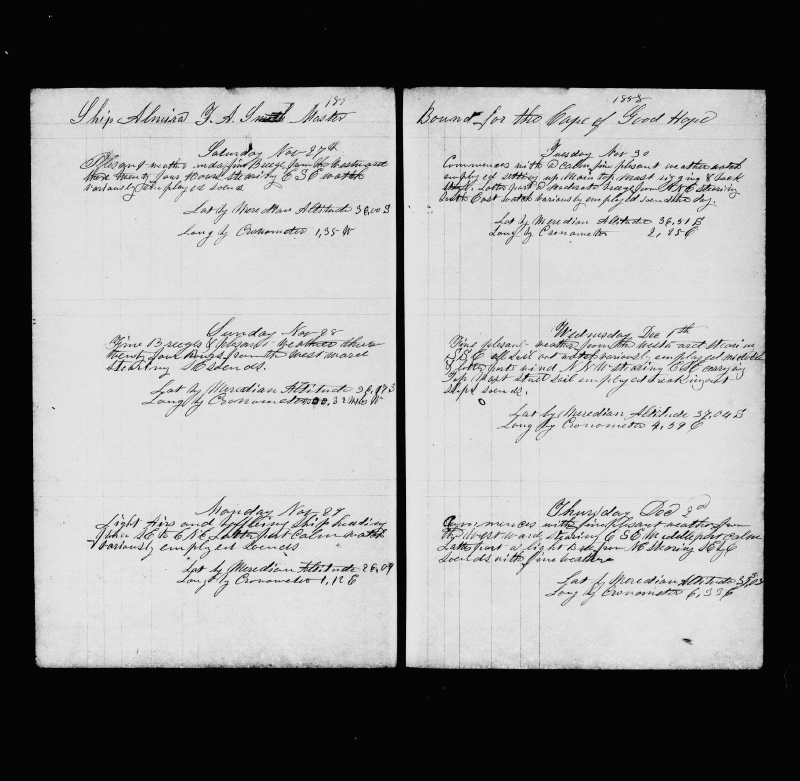 185
Ship Almira F. A. Smith Master
Saturday Nov 27th
Pleasant weather and a fine Breeze from the Westward
these twenty four hours stearing ESE watch
variously employed soends
Lat by Meredian Altitude 36,00 S
Long by Cronometer 1,35 W
Sunday Nov 28
Fine Breezes & plesant weather these
twenty four hours from the westward
stearing SE soends.
Lat by Meredian Altitude S
Long by Cronometer W
Monday Nov 29
Light Airs and Ship heading
from SE to ENE Latter part Calm watch
variously employed soends
Lat by Meredian Altitude 36,09
Long by Cronometer 1,12 E
1858
Bound for the Cape of Good Hope
Tuesday Nov 30
Commences with a calm fine plesant weather watch
employed setting up Main top mast rigging & back
stays. Latter part a moderate breeze from NNE stearing
East watch variously employed soends the day.
Lat by Meredian Altitude 36,51 S
Long by Cronometer 2,25 E
Wednesday Dec 1th
Fine plesant weather from the westward stearing
ESE all sail out watch variously employed middle
& latter parts wind NNW stearing ESE carrying
Top Mast stud sail employed breaking out
ship soends.
Lat by Meredian Altitude 37,04 S
Long by Cronometer 4,39 E
Thursday Dec 2d
Commences with fine plesant weather from
the Westward, stearing ESE Middle part calm
Latter part a light Breeze from NE stearing SE by E
soends with fine weather
Lat by Meredian Altitude
Long by Cronometer 6,33 E